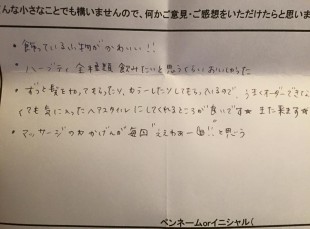 んな小さなことでも構いませんので、何かご意見・ご感想をいただけたらと思いま
・飾っている小物がかわいい!!
・ハーブティ全種類飲みたいと思うくらいおいしかった
・ずっと髪を切ってもらったり、カラーしたりしてもらっているので、うまくオーダーできな
くても気に入ったヘアスタイルにしてくれるところが良いです★また来ます☆
・マッサージのかげんが毎回"ええわぁー!!"と思う
ペンネームorイニシャル(